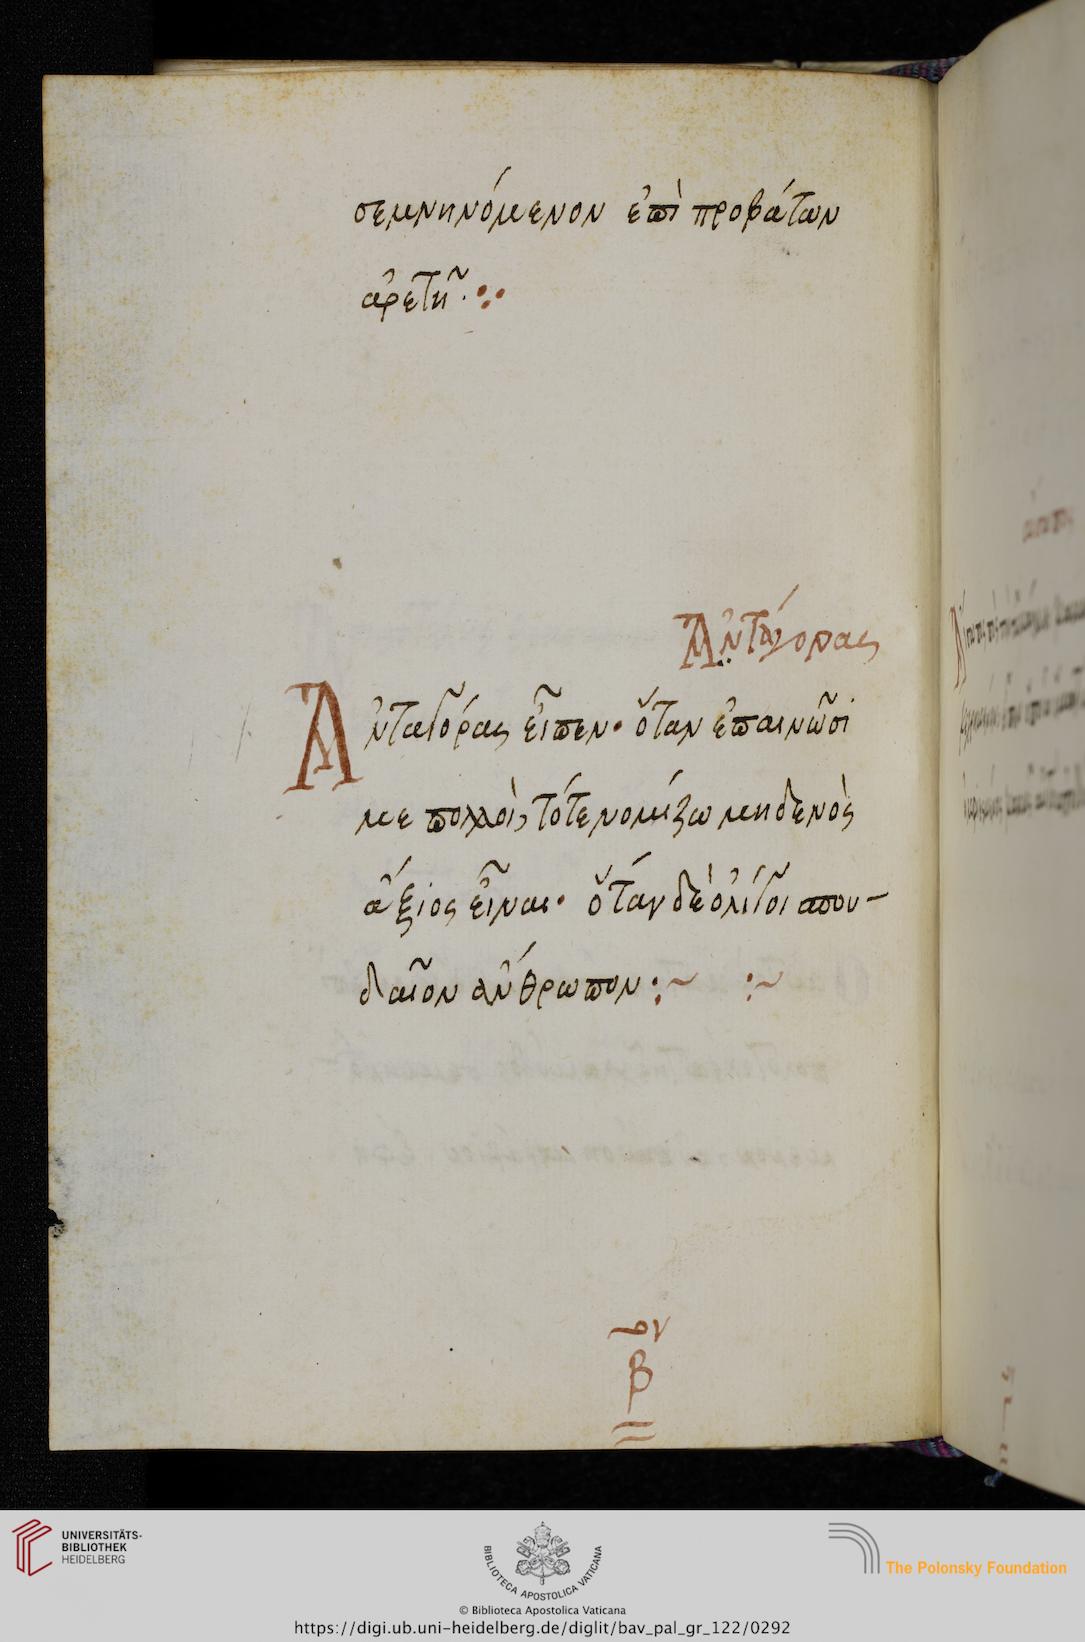 σεμνηνόμενον ἐπὶ προβάτων
ἀρετῆ.
Ἀνταγόρας
Ἀνταγόρας εἶπεν· ὅταν ἐπαινῶσί
με πολλοὶ, τότε νομίζω μηδενὸς
ἄξιος εἶναι· ὅταν δὲ ὀλίγοι σπου-
δαῖον ἄνθρωπον
β
UNIVERSITÄTS-
BIBLIOTHEK
HEIDELBERG
BIBLIOTECA APOSTOLICA VATICANA
The Polonsky Foundation
© Biblioteca Apostolica Vaticana
https://digi.ub.uni-heidelberg.de/diglit/bav_pal_gr_122/0292